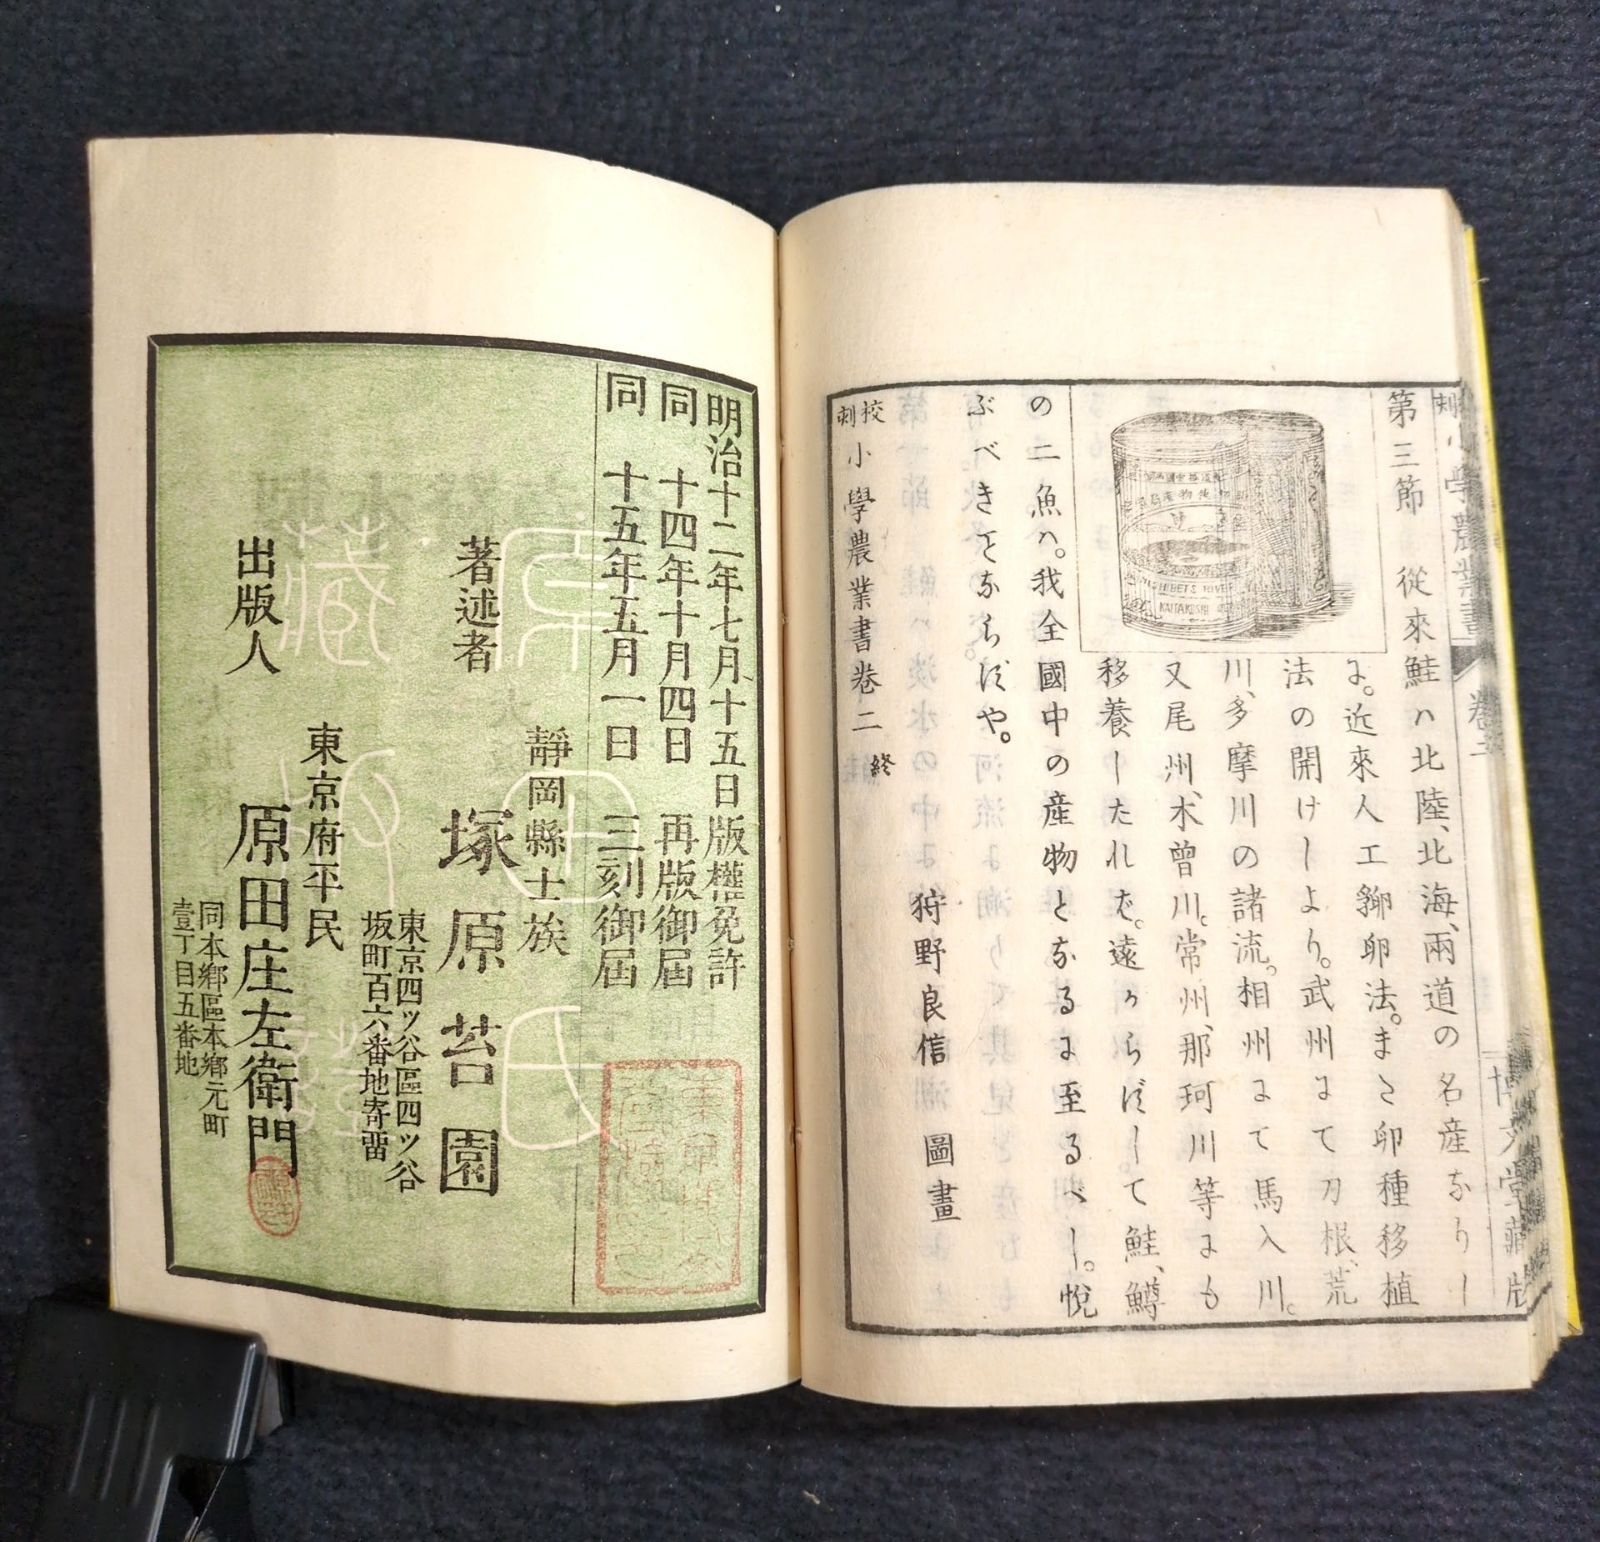 第三節 從來鮭ハ北陸、北海、兩道の名産なりし
に。近來人工孵卵法。また卵種移植
法の開けしより。武州にて刀根、荒
川、多摩川の諸流。相州にて馬入川。
又尾州、木曾川。常州、那珂川等にも
移養したれば。遠からずして鮭、鱒
の二魚ハ。我全國中の産物となるに至るべし。悦
ぶべきことならずや。
狩野良信 圖畫
校刻 小學農業書卷二 終
小學農業書
卷二
博文堂藏版
KAITAKUSHI
明治十二年七月十五日版權免許
同 十四年十月四日 再版御届
同 十五年五月一日 三刻御届
靜岡縣士族
著述者 塚原苔園
東京四ッ谷區四ッ谷
坂町百六番地寄畱
東京府平民
出版人 原田庄左衛門
同本郷區本郷元町
壹丁目五番地
原田氏
藏版